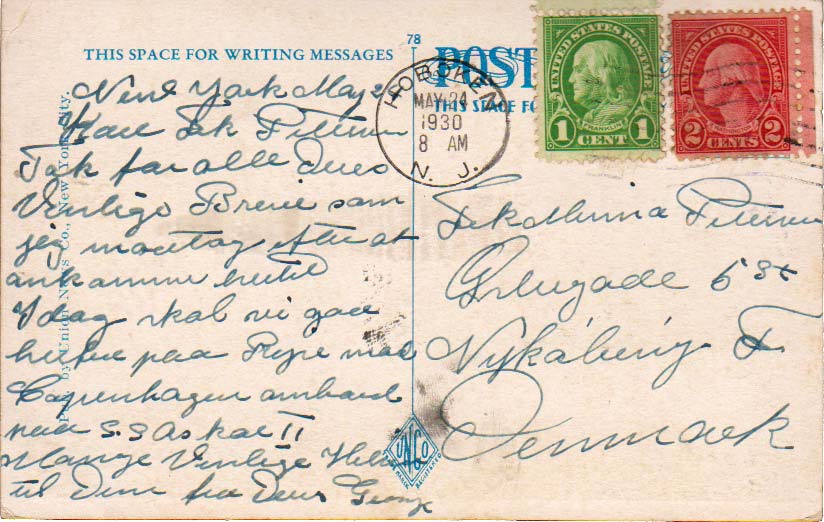 THIS SPACE FOR WRITING MESSAGES
78
POST
THIS SPACE FO
Pub. by Union News Co., New York City.
HOBOKEN
MAY 24
1930
8 AM
N. J.
UNITED STATES POSTAGE
FRANKLIN
1 CENT 1
UNITED STATES POSTAGE
WASHINGTON
2 CENTS 2
New York May 2
Kære Frk Petersen
Tak for alle Deres
Venlige Breve som
jeg modtog efter at
ankomme hertil
Idag skal vi gaa
herfra paa Rejse mod
Copenhagen ombord
paa S.S Oskar II
Mange Venlige Hils
til Dem fra Deres George
Frk Petersen
gade 5 St
Nykøbing F
Denmark
UNCO
REGISTERED